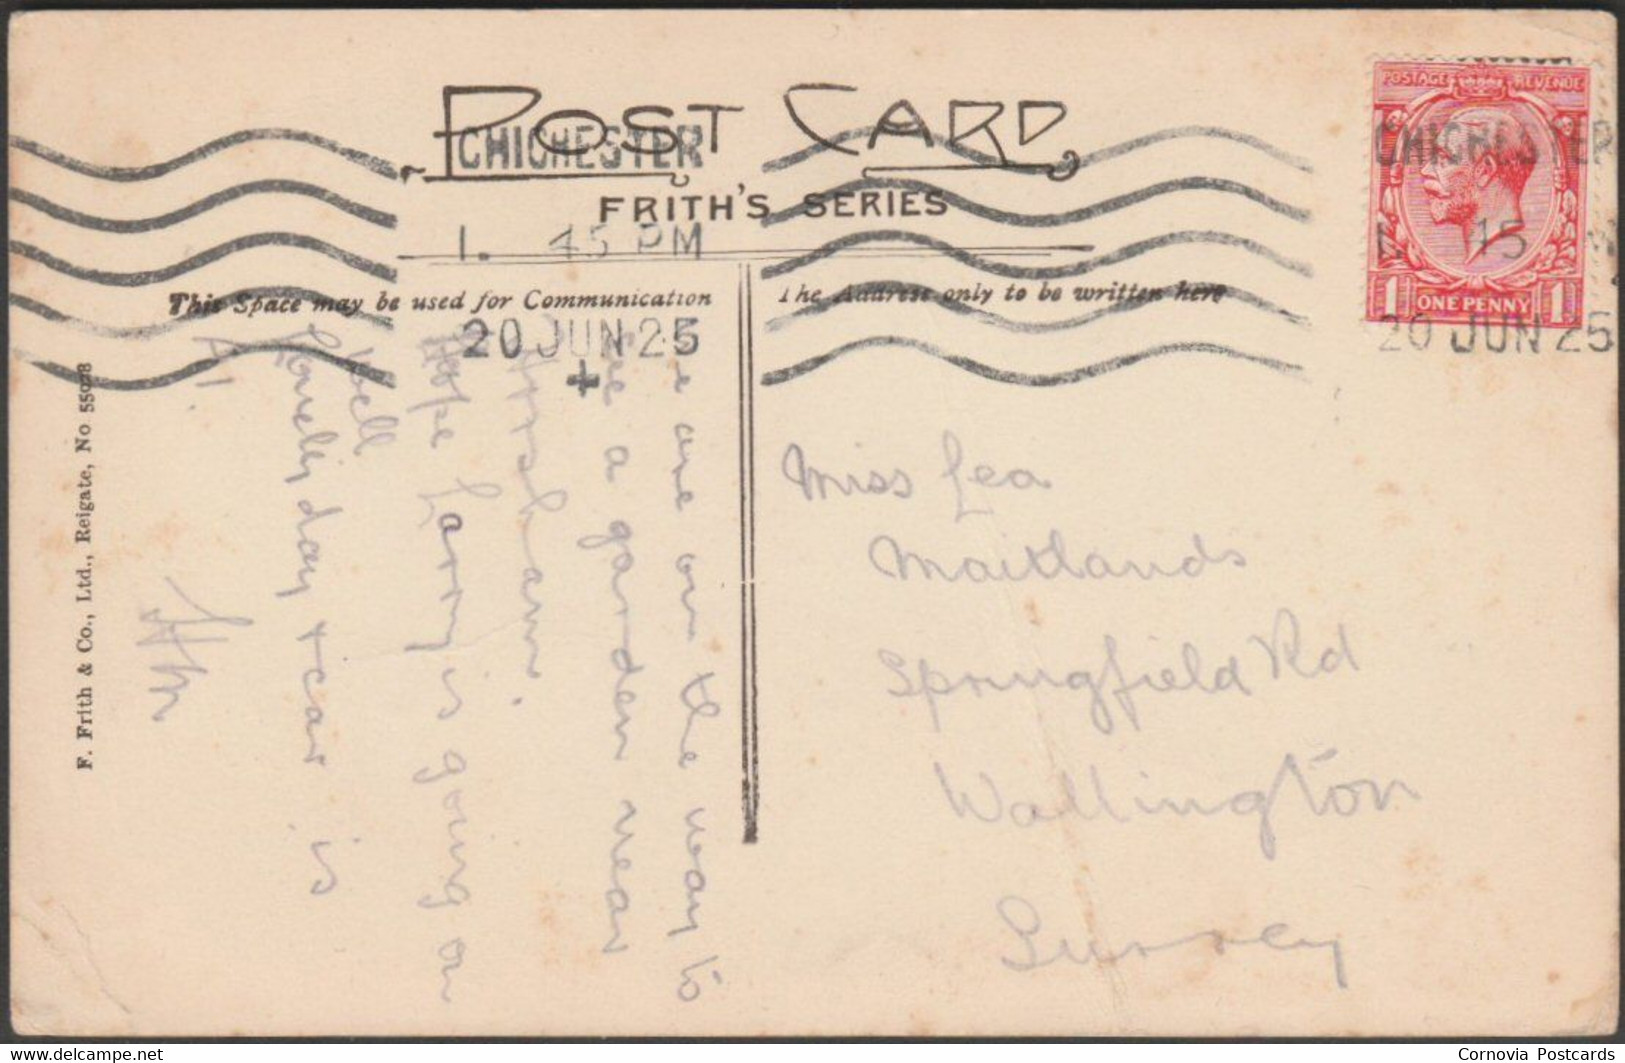 POST CARD
FRITH'S SERIES
This Space may be used for Communication
The Address only to be written here
CHICHESTER
1. 45 PM
20 JUN 25
POSTAGE REVENUE
1 ONE PENNY 1
CHICHESTER
1. 45
20 JUN 25
We are on the way to
see a garden near
Horsham.
Hope Larry is going on
well
Lovely day & car is
A1
Miss Lea
Maitlands
Springfield Rd
Wallington
Surrey
F. Frith & Co., Ltd., Reigate, No 55028
delcampe.net
Cornovia Postcards